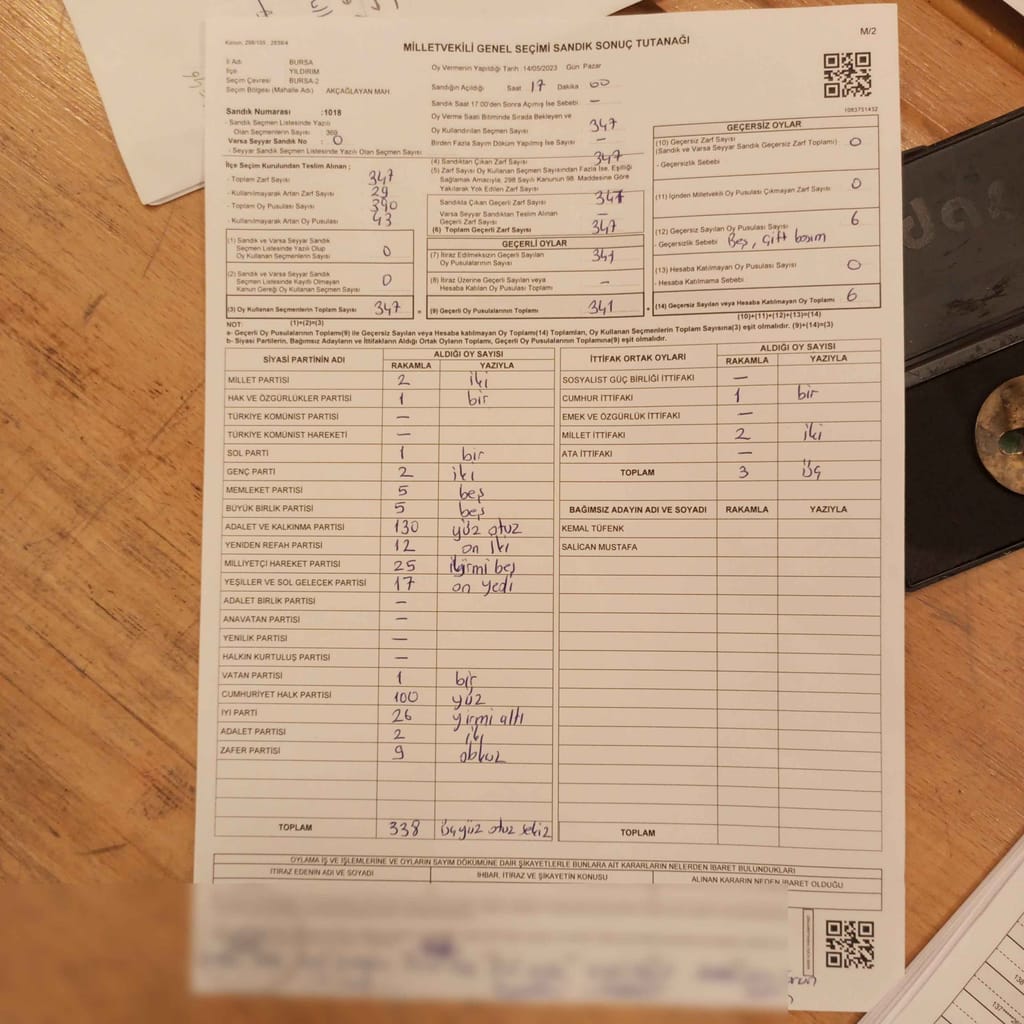 M/2
MİLLETVEKİLİ GENEL SEÇİMİ SANDIK SONUÇ TUTANAĞI
İl Adı BURSA
İlçe YILDIRIM
Seçim Çevresi BURSA-2
Seçim Bölgesi (Mahalle Adı) AKÇAĞLAYAN MAH.
Oy Vermenin Yapıldığı Tarih :14/05/2023 Gün Pazar
Sandığın Açıldığı Saat 17 Dakika 00
Sandık Saat 17:00'den Sonra Açılmış İse Sebebi —
Oy Verme Saati Bitiminde Sırada Bekleyen ve
Oy Kullandırılan Seçmen Sayısı 347
Birden Fazla Sayım Döküm Yapılmış İse Sayısı —
Sandık Numarası :1018
- Sandık Seçmen Listesinde Yazılı
Olan Seçmenlerin Sayısı : 369
Varsa Seyyar Sandık No : 0
- Seyyar Sandık Seçmen Listesinde Yazılı Olan Seçmen Sayısı
İlçe Seçim Kurulundan Teslim Alınan ;
- Toplam Zarf Sayısı 347
- Kullanılmayarak Artan Zarf Sayısı 29
- Toplam Oy Pusulası Sayısı 390
- Kullanılmayarak Artan Oy Pusulası 43
(1) Sandık ve Varsa Seyyar Sandık
Seçmen Listesinde Yazılı Olup
Oy Kullanan Seçmenlerin Sayısı 0
(2) Sandık ve Varsa Seyyar Sandık
Seçmen Listesinde Kayıtlı Olmayan
Kanun Gereği Oy Kullanan Seçmen Sayısı 0
(3) Oy Kullanan Seçmenlerin Toplam Sayısı 347
(1)+(2)=(3)
(4) Sandıktan Çıkan Zarf Sayısı 347
(5) Zarf Sayısı Oy Kullanan Seçmen Sayısından Fazla İse, Eşitliği
Sağlamak Amacıyla, 298 Sayılı Kanunun 98. Maddesine Göre
Yakılarak Yok Edilen Zarf Sayısı
Sandıkta Çıkan Geçerli Zarf Sayısı 347
Varsa Seyyar Sandıktan Teslim Alınan
Geçerli Zarf Sayısı —
(6) Toplam Geçerli Zarf Sayısı 347
GEÇERLİ OYLAR
(7) İtiraz Edilmeksizin Geçerli Sayılan
Oy Pusulalarının Sayısı 341
(8) İtiraz Üzerine Geçerli Sayılan veya
Hesaba Katılan Oy Pusulası Toplamı —
(9) Geçerli Oy Pusulalarının Toplamı 341
1083751432
GEÇERSİZ OYLAR
(10) Geçersiz Zarf Sayısı
(Sandık ve Varsa Seyyar Sandık Geçersiz Zarf Toplamı) 0
- Geçersizlik Sebebi
(11) İçinden Milletvekili Oy Pusulası Çıkmayan Zarf Sayısı 0
(12) Geçersiz Sayılan Oy Pusulası Sayısı 6
- Geçersizlik Sebebi Beş, çift basım
(13) Hesaba Katılmayan Oy Pusulası Sayısı 0
- Hesaba Katılmama Sebebi
(14) Geçersiz Sayılan veya Hesaba Katılmayan Oy Toplamı 6
(10)+(11)+(12)+(13)=(14)
NOT:
a- Geçerli Oy Pusulalarının Toplamı(9) ile Geçersiz Sayılan veya Hesaba katılmayan Oy Toplamı(14) Toplamları, Oy Kullanan Seçmenlerin Toplam Sayısına(3) eşit olmalıdır. (9)+(14)=(3)
b- Siyasi Partilerin, Bağımsız Adayların ve İttifakların Aldığı Ortak Oyların Toplamı, Geçerli Oy Pusulalarının Toplamına(9) eşit olmalıdır.
SİYASİ PARTİNİN ADI ALDIĞI OY SAYISI
RAKAMLA YAZIYLA
MİLLET PARTİSİ 2 iki
HAK VE ÖZGÜRLÜKLER PARTİSİ 1 bir
TÜRKİYE KOMÜNİST PARTİSİ —
TÜRKİYE KOMÜNİST HAREKETİ —
SOL PARTİ 1 bir
GENÇ PARTİ 2 iki
MEMLEKET PARTİSİ 5 beş
BÜYÜK BİRLİK PARTİSİ 5 beş
ADALET VE KALKINMA PARTİSİ 130 yüz otuz
YENİDEN REFAH PARTİSİ 12 on iki
MİLLİYETÇİ HAREKET PARTİSİ 25 yirmi beş
YEŞİLLER VE SOL GELECEK PARTİSİ 17 on yedi
ADALET BİRLİK PARTİSİ —
ANAVATAN PARTİSİ —
YENİLİK PARTİSİ —
HALKIN KURTULUŞ PARTİSİ —
VATAN PARTİSİ 1 bir
CUMHURİYET HALK PARTİSİ 100 yüz
İYİ PARTİ 26 yirmi altı
ADALET PARTİSİ 2 iki
ZAFER PARTİSİ 9 dokuz
TOPLAM 338 üçyüz otuz sekiz
İTTİFAK ORTAK OYLARI ALDIĞI OY SAYISI
RAKAMLA YAZIYLA
SOSYALİST GÜÇ BİRLİĞİ İTTİFAKI —
CUMHUR İTTİFAKI 1 bir
EMEK VE ÖZGÜRLÜK İTTİFAKI —
MİLLET İTTİFAKI 2 iki
ATA İTTİFAKI —
TOPLAM 3 üç
BAĞIMSIZ ADAYIN ADI VE SOYADI RAKAMLA YAZIYLA
KEMAL TÜFENK
SALİCAN MUSTAFA
TOPLAM
OYLAMA İŞ VE İŞLEMLERİNE VE OYLARIN SAYIM DÖKÜMÜNE DAİR ŞİKAYETLERLE BUNLARA AİT KARARLARIN NELERDEN İBARET BULUNDUKLARI
İTİRAZ EDENİN ADI VE SOYADI İHBAR, İTİRAZ VE ŞİKAYETİN KONUSU ALINAN KARARIN NEDEN İBARET OLDUĞU